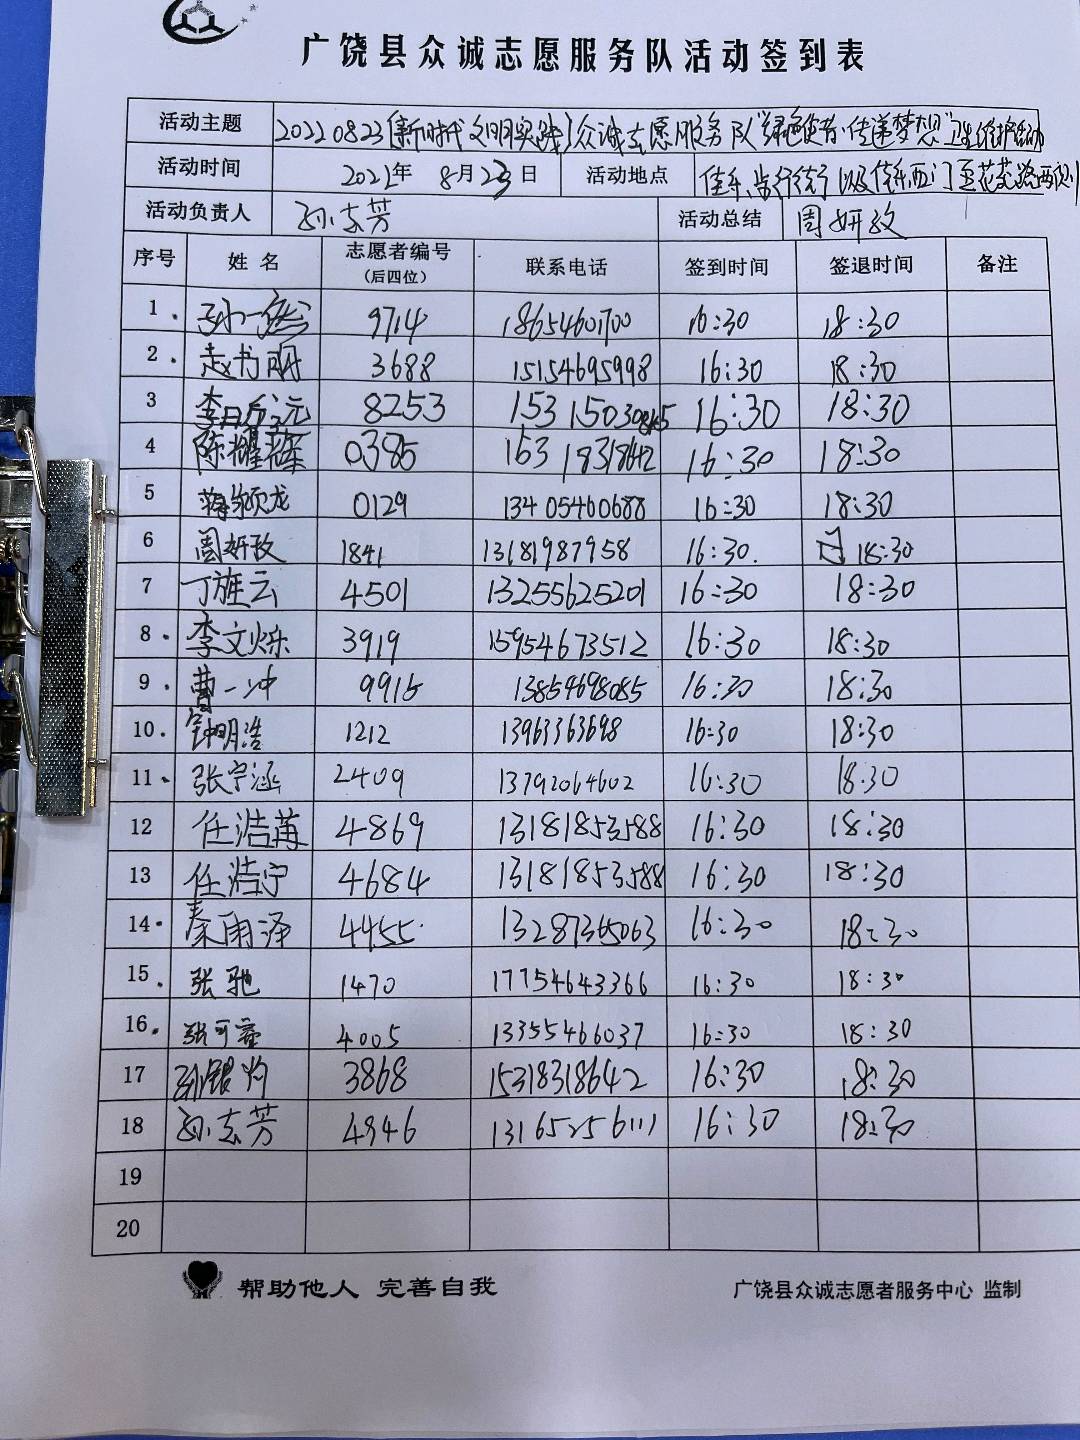 广饶县众诚志愿服务队活动签到表
活动主题 20220823【新时代文明实践】众诚志愿服务队"绿色使者·传递梦想"卫生维护活动
活动时间 2022年 8月23日 活动地点 佳乐 步行街 以及佳乐西门至花苑路两侧
活动负责人 孙志芳 活动总结 周妍孜
序号 姓名 志愿者编号(后四位) 联系电话 签到时间 签退时间 备注
1. 孙一 9714 18654601700 16:30 18:30
2. 赵书丽 3688 15154695998 16:30 18:30
3 李 元 8253 153 1503 16:30 18:30
4 陈耀 0385 153 18318642 16:30 18:30
5 蒋 龙 0129 13405460688 16:30 18:30
6 周妍孜 1841 13181987958 16:30. 18:30
7 丁旌云 4501 13255625201 16:30 18:30
8. 李文烁 3919 15954673512 16:30 18:30
9. 曹一冲 9915 13854698085 16:30 18:30
10. 钟明浩 1212 13963363698 16:30 18:30
11. 张宁涵 2409 13792064602 16:30 18:30
12 任浩苒 4869 13181853588 16:30 18:30
13 任浩宁 4684 13181853588 16:30 18:30
14. 秦雨泽 4455 13287365063 16:30 18:30
15. 张驰 1470 17754643366 16:30 18:30
16. 张可 4005 13355466037 16:30 18:30
17 孙银灼 3868 15318318642 16:30 18:30
18 孙志芳 4946 13165256111 16:30 18:30
19
20
帮助他人 完善自我 广饶县众诚志愿者服务中心 监制